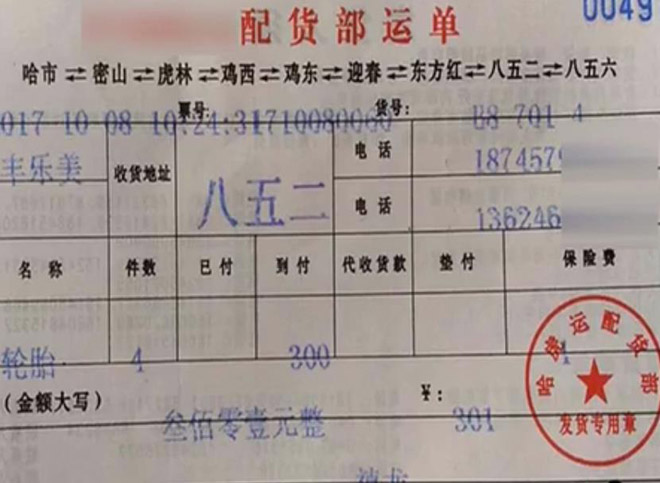 0049
配货部运单
哈市⇌密山⇌虎林⇌鸡西⇌鸡东⇌迎春⇌东方红⇌八五二⇌八五六
票号: 货号:
017 10 08 10:24:31710080060 U8 701 4
丰乐美 收货地址 八五二 电话 1874579
电话 136246
名称 件数 已付 到付 代收货款 垫付 保险费
轮胎 4 300 1
(金额大写) 叁佰零壹元整 ¥: 301
运配货部
发货专用章